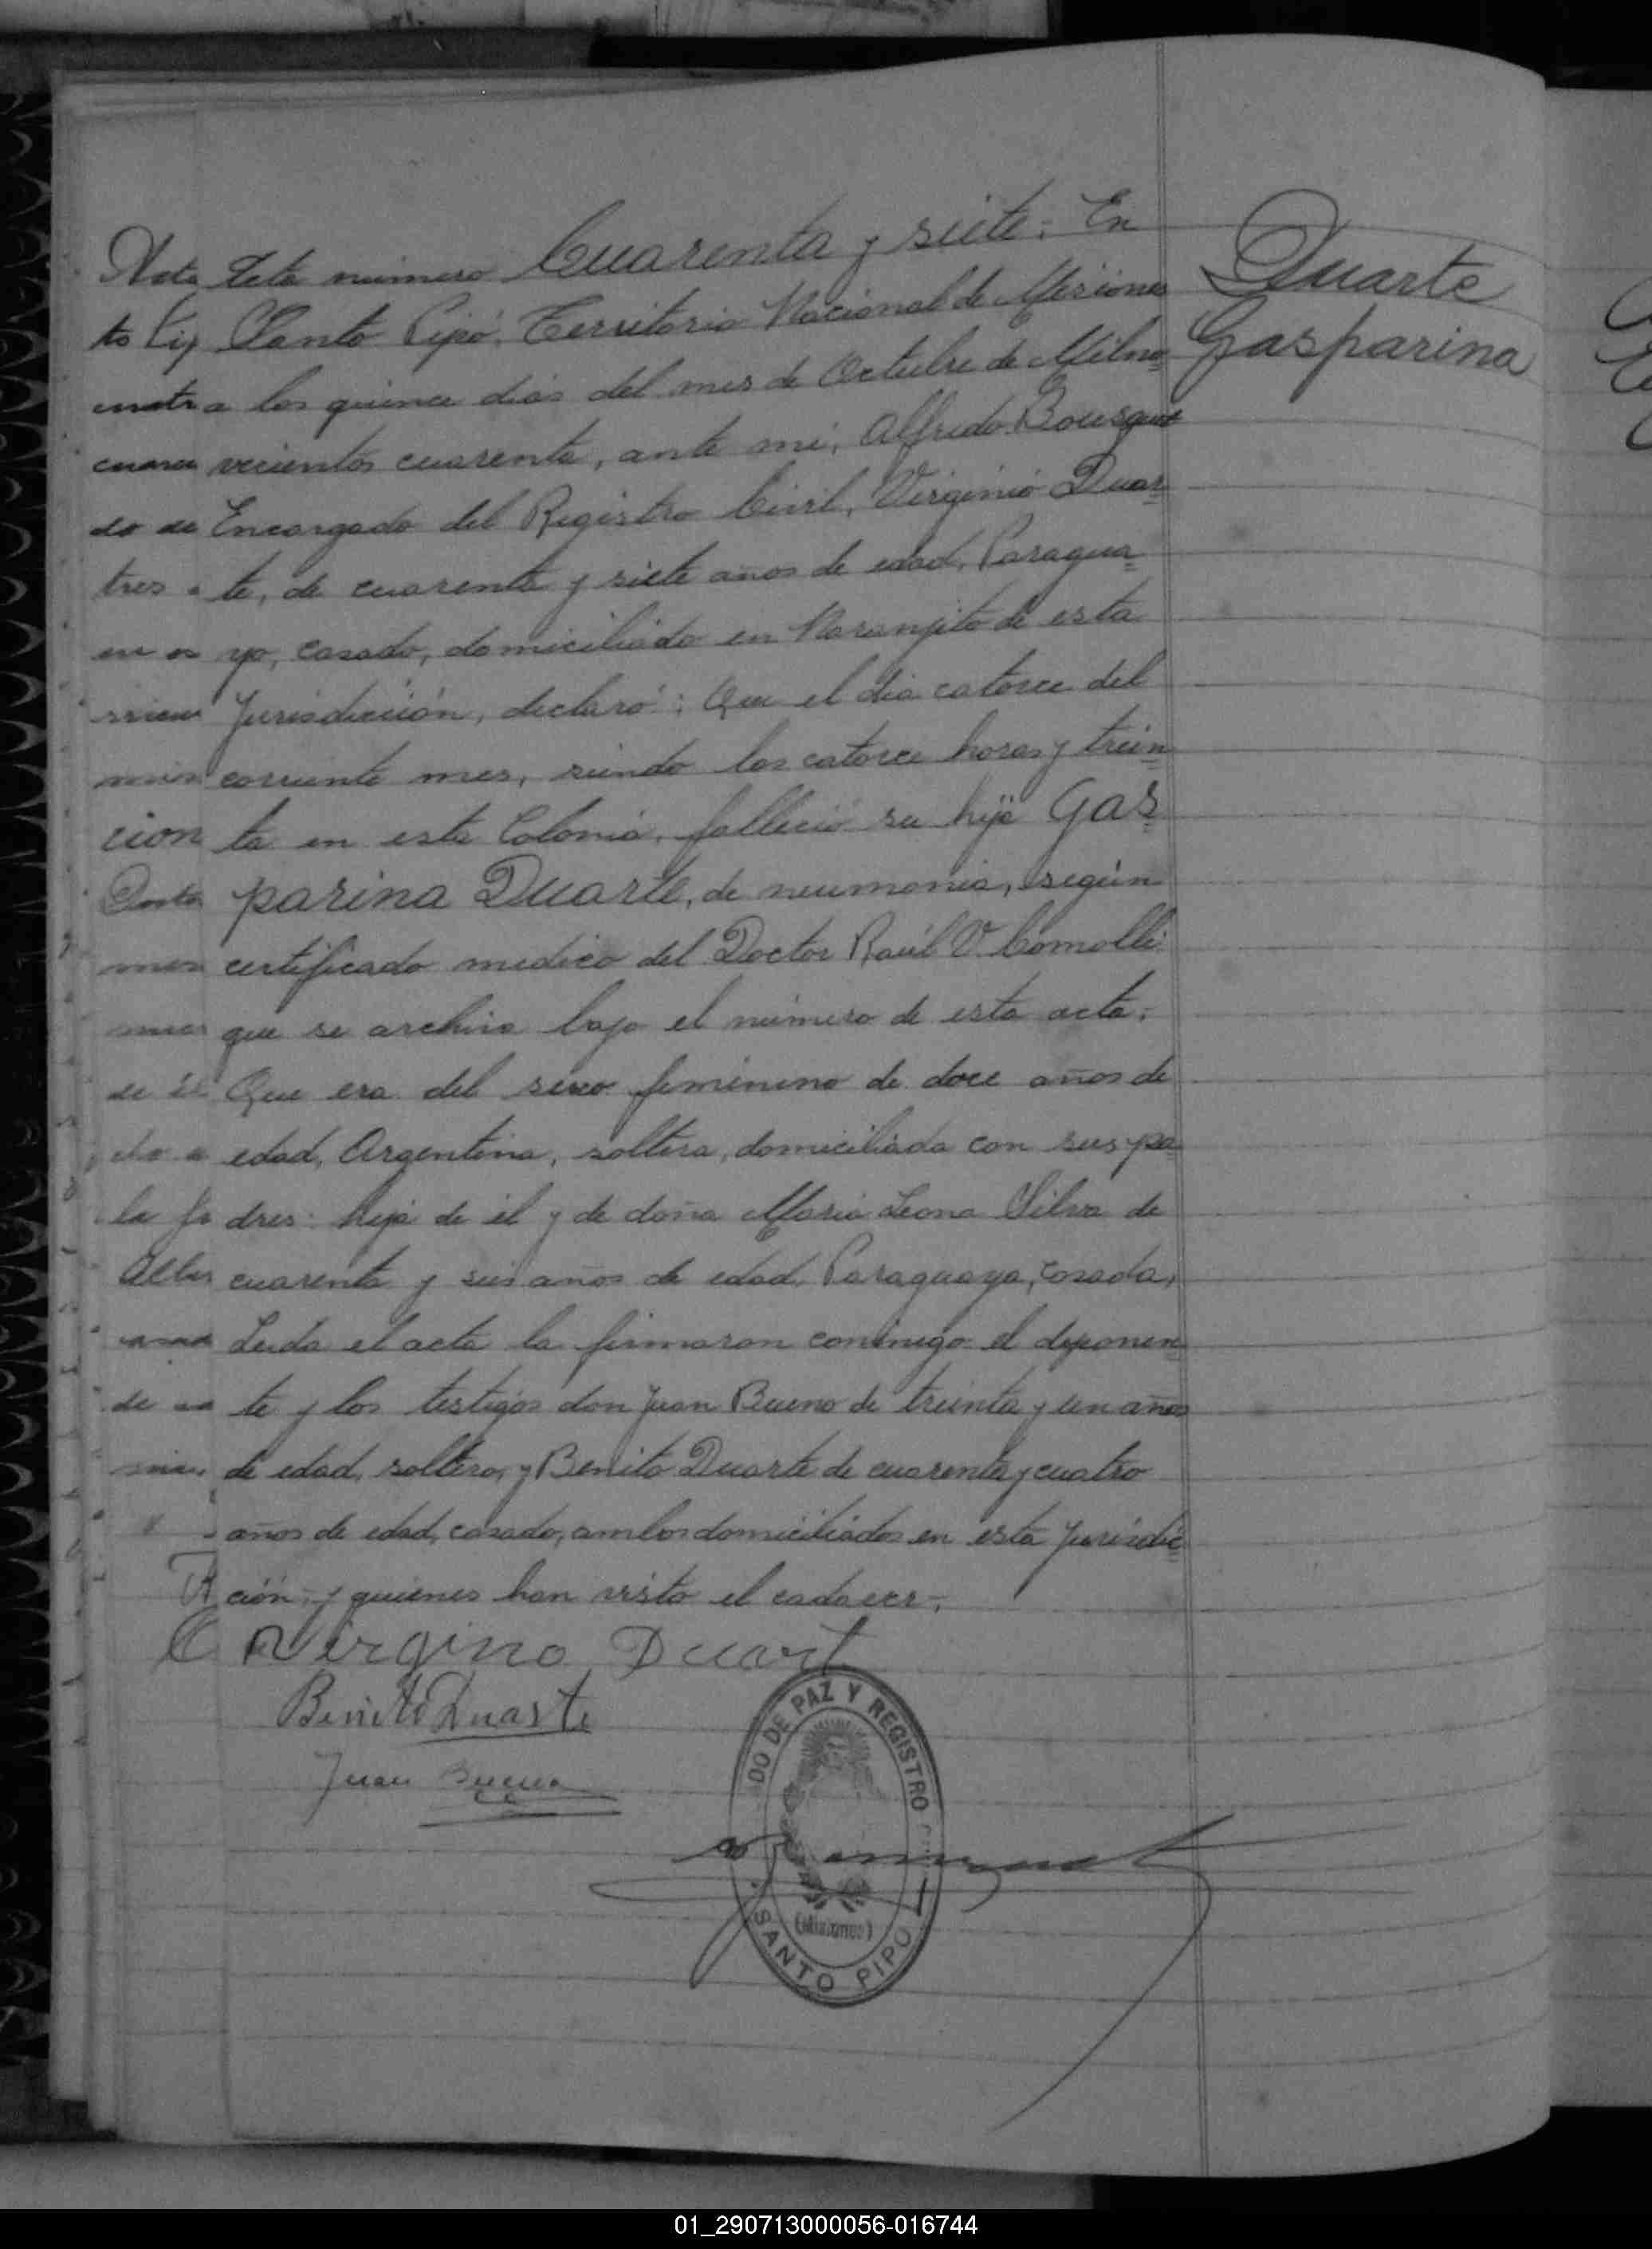 Acta número Cuarenta y siete: En
Santo Pipó, Territorio Nacional de Misiones
a los quince días del mes de Octubre de Milno=
vecientos cuarenta, ante mi, Alfredo Bousquet
Encargado del Registro Civil, Virginio Duar=
te, de cuarenta y siete años de edad, Paragua=
yo, casado, domiciliado en Naranjito de esta
Jurisdicción, declaró: Que el día catorce del
corriente mes, siendo las catorce horas y trein=
ta en esta Colonia, falleció su hija Gas=
parina Duarte, de neumonia, según
certificado medico del Doctor Raúl V. Comolli
que se archiva bajo el número de esta acta;
Que era del sexo femenino de doce años de
edad, Argentina, soltera, domiciliada con sus pa=
dres: hija de él y de doña Maria Leona Silva de
cuarenta y seis años de edad, Paraguaya, casada,
Leida el acta la firmaron conmigo el deponen=
te y los testigos don Juan Bueno de treinta y un años
de edad, soltero, y Benito Duarte de cuarenta y cuatro
años de edad, casado, ambos domiciliados en esta Jurisdic=
ción, y quienes han visto el cadaver-,
Virgino Duart
Benito Duarte
Juan Bueno
Duarte
Gasparina
DO DE PAZ Y REGISTRO
(Misiones)
SANTO PIPO
01_290713000056-016744